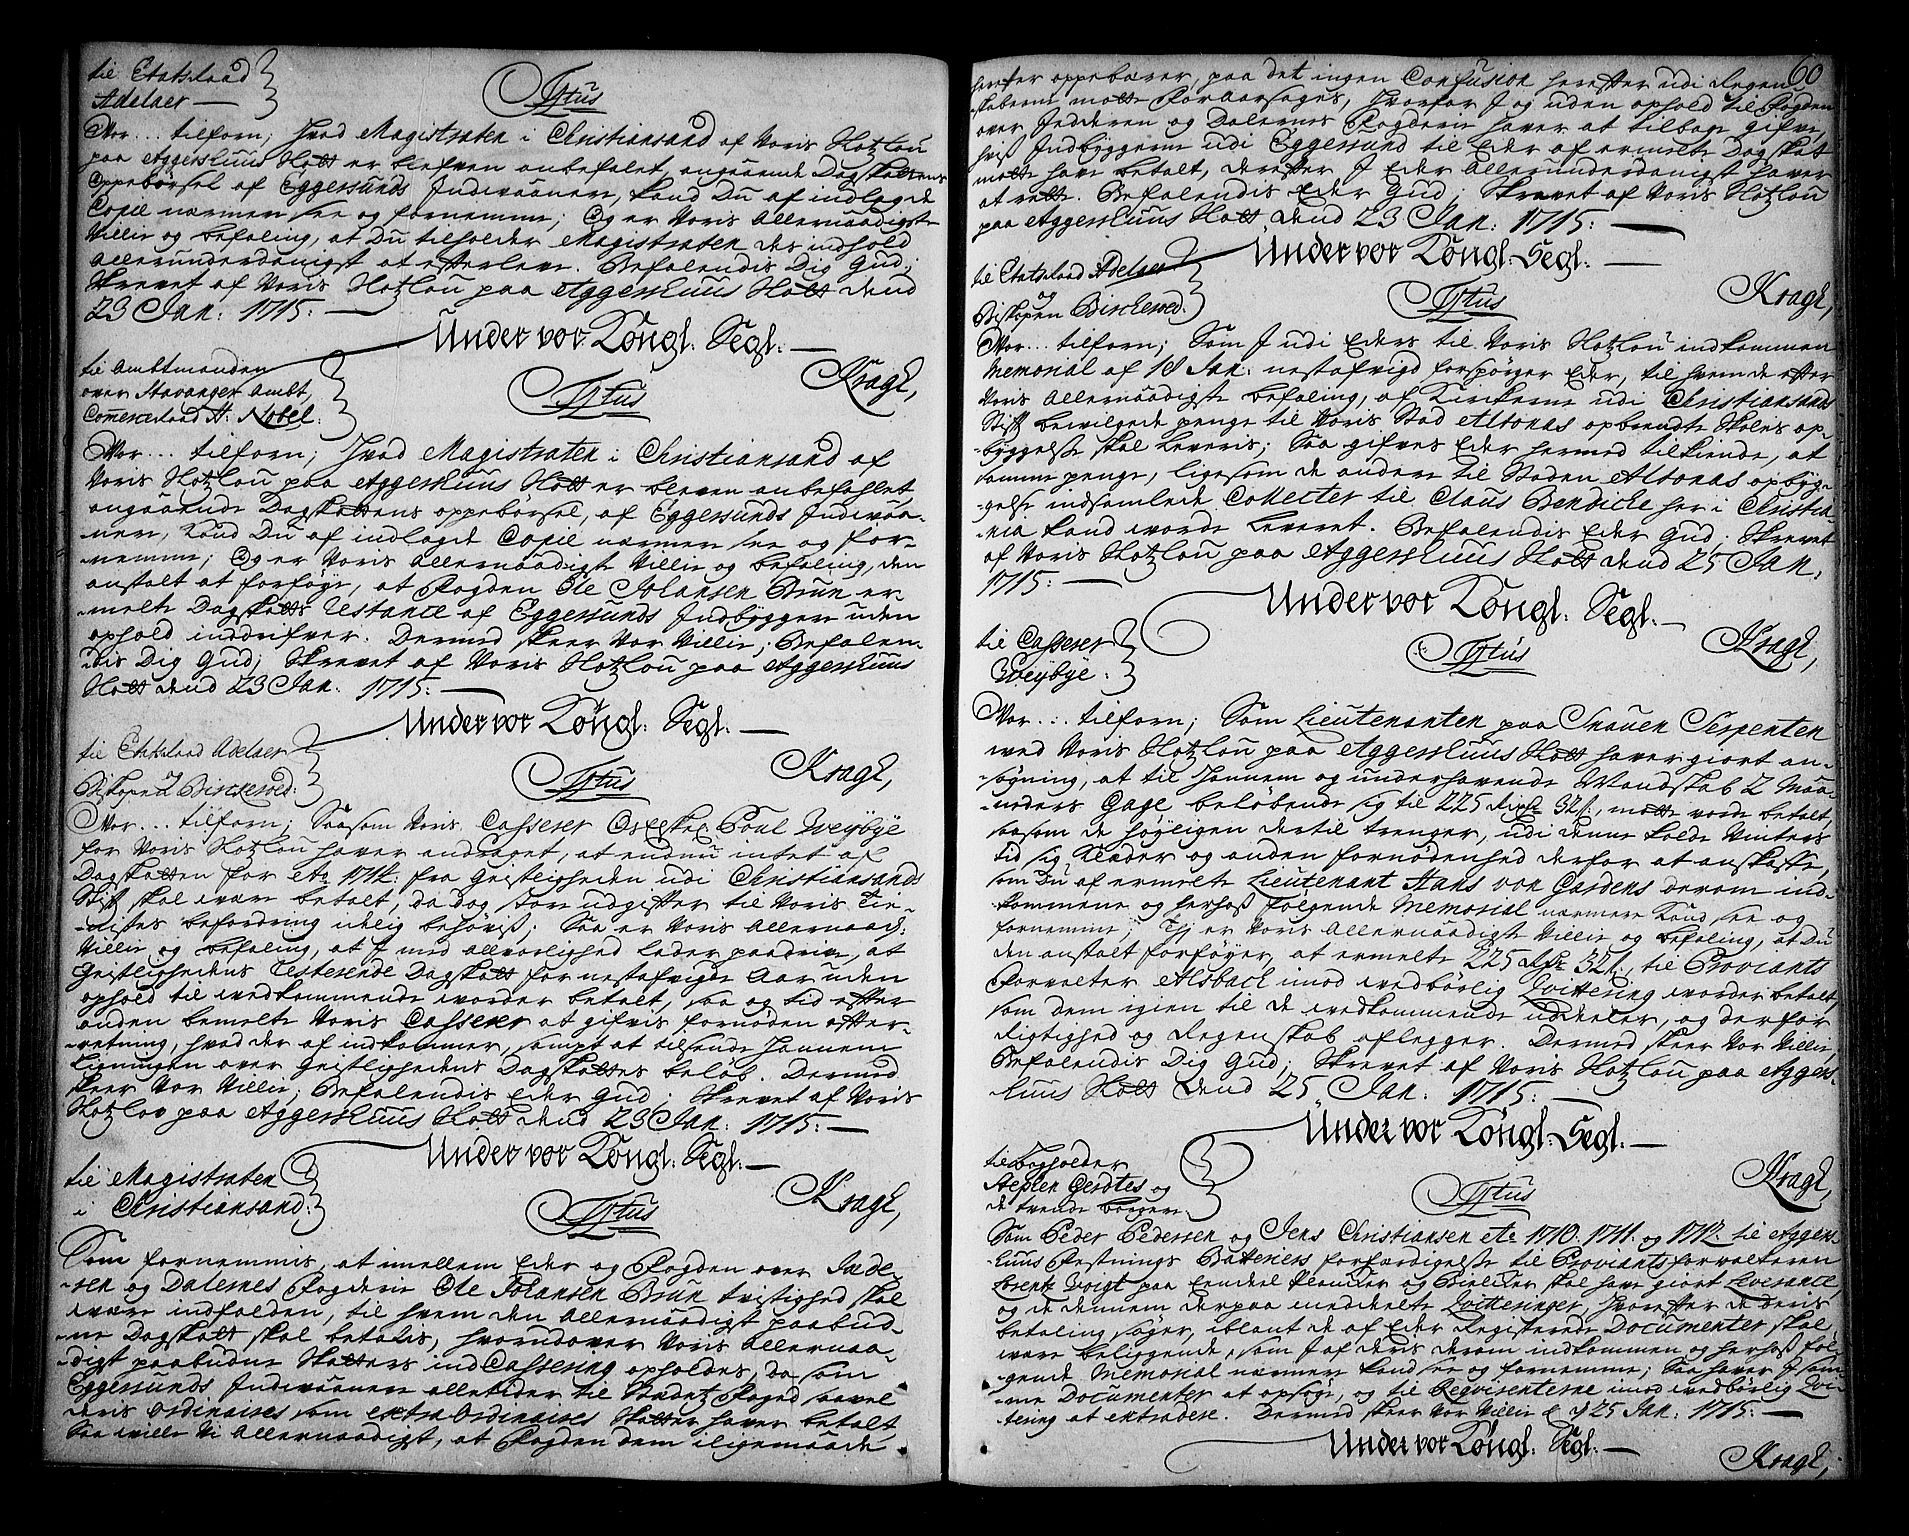 til Etatsraad
Adelaer —
Tÿtus
Vor... tilforn; Hvad Magistraten i Christiansand af Voris Slotzlou
paa Aggershuus Slott er blefven anbefalet, angaaende Dagskattens
Oppebörsel af Eggersunds Indvaanere, kand Du af indlagde
Copie nærmere see og fornemme; Og er Voris Allernaadigste
Villie og befaling, at Du tilholder Magistraten des indhold
allerunderdanigst at efterleve. Befalendis Dig Gud;
Skrevet af Voris Slotzlou paa Aggershuus Slott dend
23 Jan: 1715: —
Under vor Kongl: Segl: —
Kragh,
til Ambtmanden
over Stavanger Ambt,
Commerceraad H: Nobel:
Tÿtus
Vor... tilforn; Hvad Magistraten i Christiansand af
Voris Slotzlou paa Aggershuus Slott er bleven anbefahlet,
angaaende Dagskattens oppebörsel, af Eggersunds Indvaa-
nere, kand Du af indlagde Copie nærmere see og for-
nemme; Og er Voris Allernaadigst Villie og befaling, den
anstalt at forföye, at Fogden Ole Johansen Brun er-
melte Dagskatts Restance af Eggersunds Indbÿggere uden
ophold inddrifver. Dermed skeer Vor Villie; Befalen-
dis Dig Gud; Skrevet af Voris Slotzlou paa Aggershuus
Slott dend 23 Jan: 1715: —
Under vor Kongl: Segl: —
Kragh,
til Etatsraad Adelaer
og
Biskopen Birckerod:
Tÿtus
Vor... tilforn; Saasom Voris Casserer Poul Weybye
for Voris Slotzlou haver andraget, at endnu intet af
Dagskatten for ao 1714: fra Geistligheden udi Christiansands
Stift skal være betalt, da dog store udgifter til Voris Tie-
nistes befordring idelig behöves; Saa er Voris Allernaad:
Villie og befaling, at I med alvorlighed lader paadrive, at
Geistlighedens Resterende Dagskatt for nestafvigte Aar uden
ophold til vedkommende vorder betalt, saa og tid efter
anden bemelte Voris Casserer at gifvis fornöden efter-
retning, hvad der af indkommer, sampt at tilsende Hannem
Ligningen over Geistlighedens Dagskattes belöb. Dermed
skeer Vor Villie; Befalendis Eder Gud; Skrevet af Voris
Slotzlov paa Aggershuus Slott dend 23 Jan: 1715: —
Under vor Kongl: Segl: —
Kragh,
til Magistraten
i Christiansand:
Tÿtus
Som fornemmis, at imellem Eder og Fogden over Jæde-
ren og Dalernes Fogderie Ole Johansen Brun tvistighed skal
være indfalden, til hvem den Allernaadigst paabud-
ne Dagskatt skal betalis, hvorudover Voris Allernaa-
digst paabudne Skatters indCassering opholdes, da som
Eggersunds Indvaanere alletider til Stædetz Foged saavel
deris ordinaires som extraordinaires Skatter haver betalt
Saa ville Vi Allernaadigst, at Fogden dem iligemaade
60
herefter oppebærer, paa det ingen Confusion herefter udi Regen-
skaberne motte foraarsages, hvorfor I og uden ophold til Fogden
over Jedderen og Dalernes Fogderie haver at tilbage gifve,
hviß Indbÿggerne udi Eggersund til Eder af ermelte Dagskat
motte have betalt, derefter I Eder Allerunderdanigst haver
at rette. Befalendis Eder Gud; Skrevet af Voris Slotzlou
paa Aggershuus Slott dend 23 Jan: 1715: —
Under vor Kongl: Segl: —
Kragh,
til Etatsraad Adelaer
og
Biskopen Birckerod:
Tÿtus
Vor... tilforn; Som I udi Eders til Voris Slotzlou indkommen
Memorial af 19 Jan: nestafvigt forspörger Eder, til hvem de efter
Voris Allernaadigste befaling, af Kirkerne udi Christiansands
Stift bevilgede penge til Voris Stad Altonas opbrendte Skoles op-
byggelse skal Leveris; Saa gifves Eder hermed tilkiende, at
samme penge, ligesom de andere til Staden Altonas opbÿg-
gelse indsamlede Collecter til Claus Bendicke her i Christia-
nia kand vorde Leveret. Befalendis Eder Gud; Skrevet
af Voris Slotzlou paa Aggershuus Slott dend 25 Jan:
1715: —
Under vor Kongl: Segl: —
Kragh,
til Casserer
Weybye:
Tÿtus
Vor... tilforn; Som Lieutenanten paa Snauen Serpenten
ved Voris Slotzlou paa Aggershuus Slott haver giort an-
sögning, at til Hannem og underhavende Mandskab 2 Maa-
neders Gage belöbende sig til 225 Rixdr 32 s:, motte vorde betalt,
saasom de höyligen dertil trenger, udi denne kolde Vinters
tid sig klæder og anden fornödenhed derfor at anskaffe,
som Du af ermelte Lieutenant Hans von Gardens derom ind-
kommene og herhoß fölgende Memorial nærmere kand see og
fornemme; Thj er Voris Allernaadigste Villie og befaling, at Du
den anstalt forföyer, at ermelte 225 Rdr 32 s:, til Proviants
Forvalter Alsbach imod vedbörlig Qvittering vorder betalt,
som dem igien til de vedkommende uddeeler, og derfor
Rigtighed og Regenskab aflegger. Dermed skeer Vor Villie,
Befalendis Dig Gud; Skrevet af Voris Slotzlou paa Aggers-
huus Slott dend 25 Jan: 1715: —
Under vor Kongl: Segl: —
Kragh,
til Bogholder
Stephen Gerdtes og
de trende borgere
Tÿtus
Som Peder Pedersen og Jens Christiansen ao 1710. 1711. og 1712. til Aggers-
huus Festnings Batteriers forfærdigelse til Proviantsforvalteren
Lorentz Voigt paa eendeel Plancker og Bielcker skal have giort Leverance,
og de dennem derpaa meddeelte Qvitteringer, hvorefter de deris
betaling söger, iblant de af Eder Registerede Documenter skal
være beliggende, som I af deris derom indkommen og herhoß föl-
gende Memorial nærmere kand see og fornemme; Saa haver I sam-
me Documenter at opsöge, og til Reqvirenterne imod vedbörlig Qvi-
tering at extradere. Dermed skeer Vor Villie d 25 Jan: 1715: —
Under vor Kongl: Segl: —
Kragh,